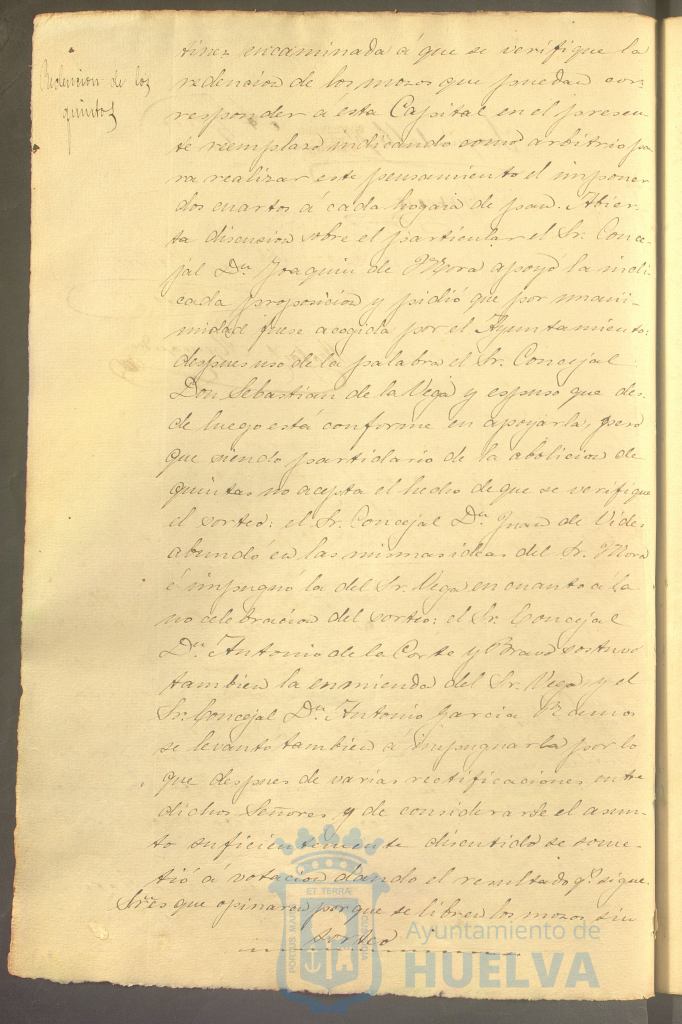 Redencion de los
quintos
tinez encaminada á que se verifique la
redencion de los mozos que puedan cor-
responder a esta Capital en el presen-
te reemplazo indicando como arbitrio pa-
ra realizar este pensamiento el imponer
dos cuartos á cada hogaza de pan. Abier-
ta discusion sobre el particular el Sr. Conce-
jal Dn. Joaquin de Mora apoyó la indi-
cada proposicion y pidió que por unani-
midad fuese acogida por el Ayuntamiento:
despues uso de la palabra el Sr. Concejal
Don Sebastian de la Vega y espuso que des-
de luego está conforme en apoyarla, pero
que siendo partidario de la abolicion de
quintas no acepta el hecho de que se verifique
el sorteo: el Sr. Concejal Dn. Juan de Vides
abundó en las mismas ideas del Sr. Mora
é impugnó la del Sr. Vega en cuanto a la
no celebracion del sorteo: el Sr. Concejal
Dn. Antonio de la Corte y Bravo sostuvo
tambien la enmienda del Sr. Vega y el
Sr. Concejal Dn. Antonio Garcia Ramos
se levantó tambien á impugnarla por lo
que despues de varias rectificaciones entre
dichos Señores y de considerarse el asun-
to suficientemente discutido se some-
tió á votacion dando el resultado qe. sigue.
Sres. que opinaron porque se libren los mozos sin
sorteo
ET TERRÆ
PORTUS MA
Ayuntamiento de
HUELVA